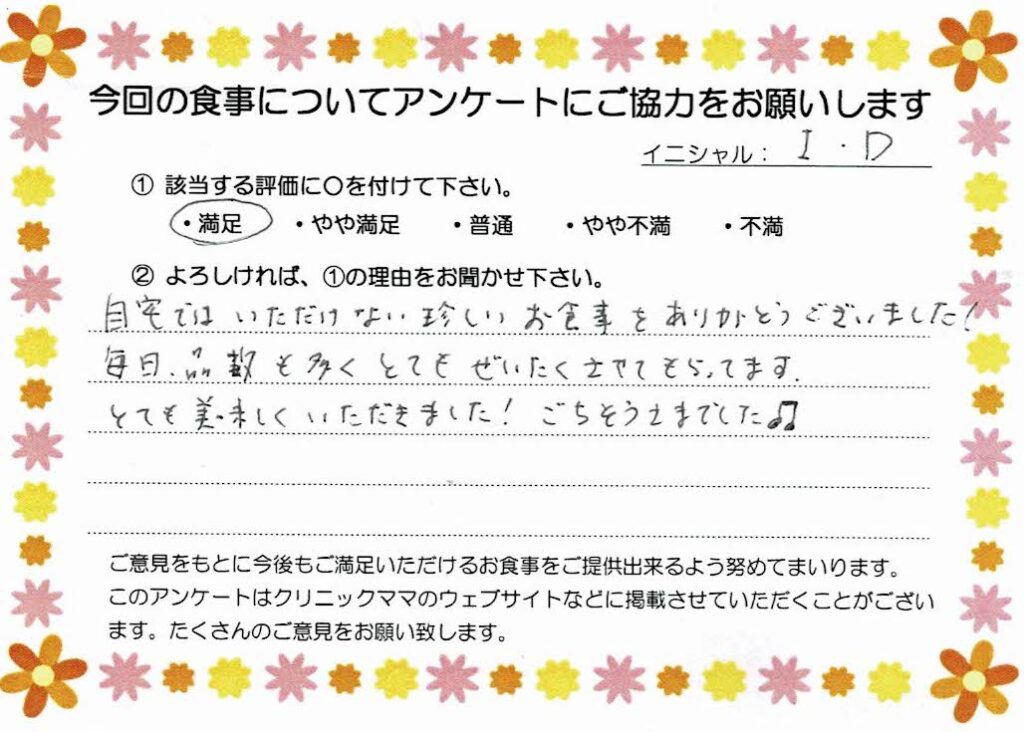 今回の食事についてアンケートにご協力をお願いします
イニシャル： I・D
① 該当する評価に〇を付けて下さい。
・満足 ・やや満足 ・普通 ・やや不満 ・不満
② よろしければ、①の理由をお聞かせ下さい。
自宅ではいただけない珍しいお食事をありがとうございました！
毎日、品数も多くとてもぜいたくさせてもらってます。
とても美味しくいただきました！ ごちそうさまでした♫
ご意見をもとに今後もご満足いただけるお食事をご提供出来るよう努めてまいります。
このアンケートはクリニックママのウェブサイトなどに掲載させていただくことがござい
ます。たくさんのご意見をお願い致します。